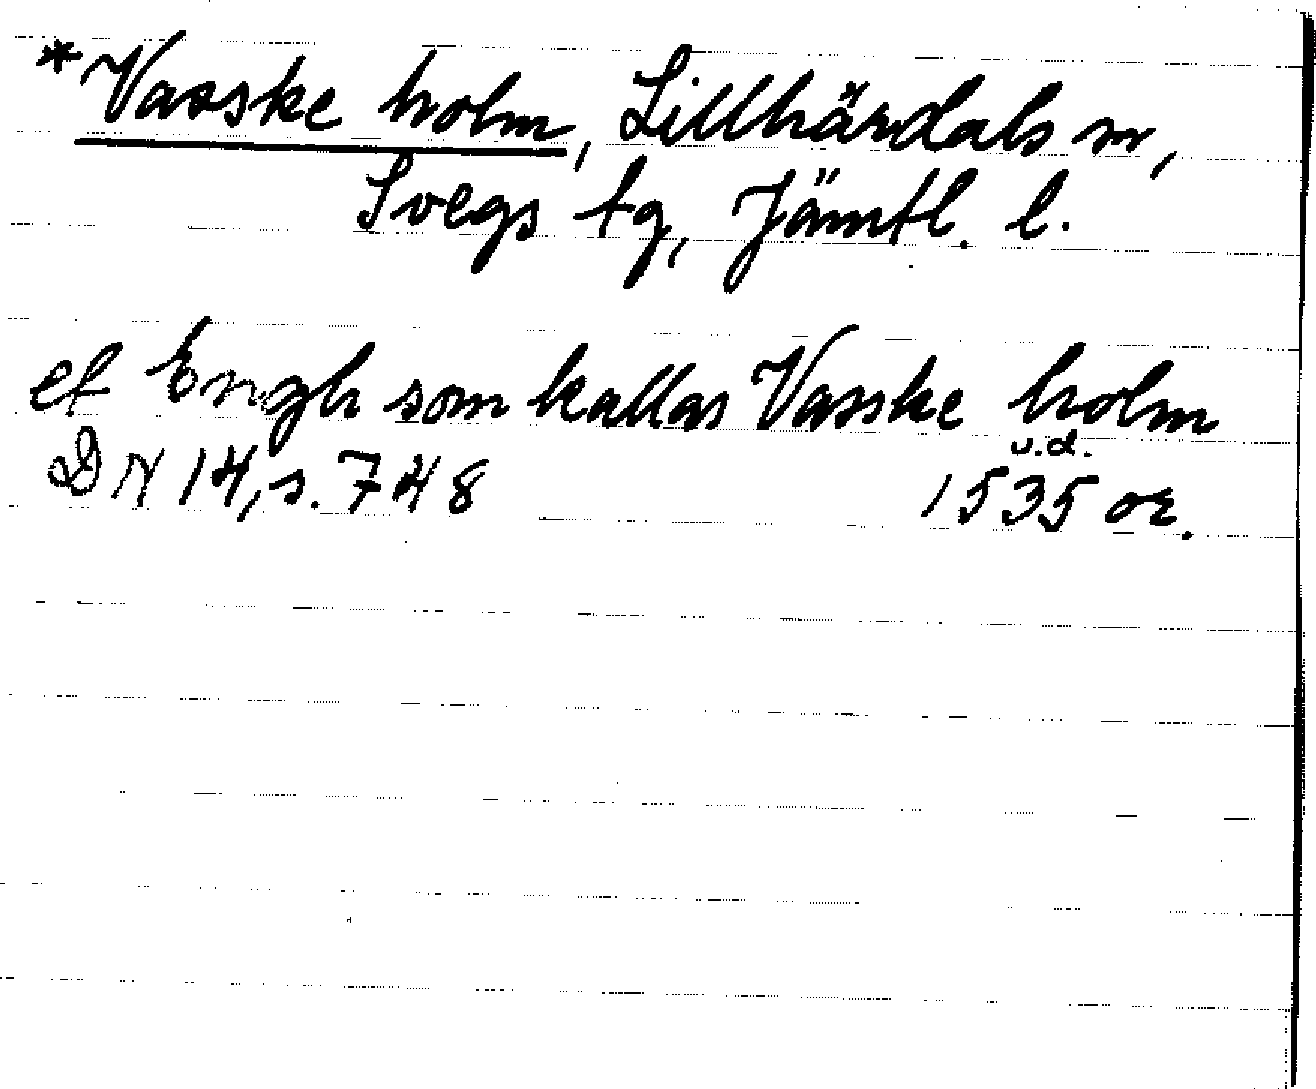 *Vasske holm, Lillhärdals sn,
Svegs tg, Jämtl. l.
et Engh som kallas Vasske holm
u.d.
DN 14, s. 748 1535 or.